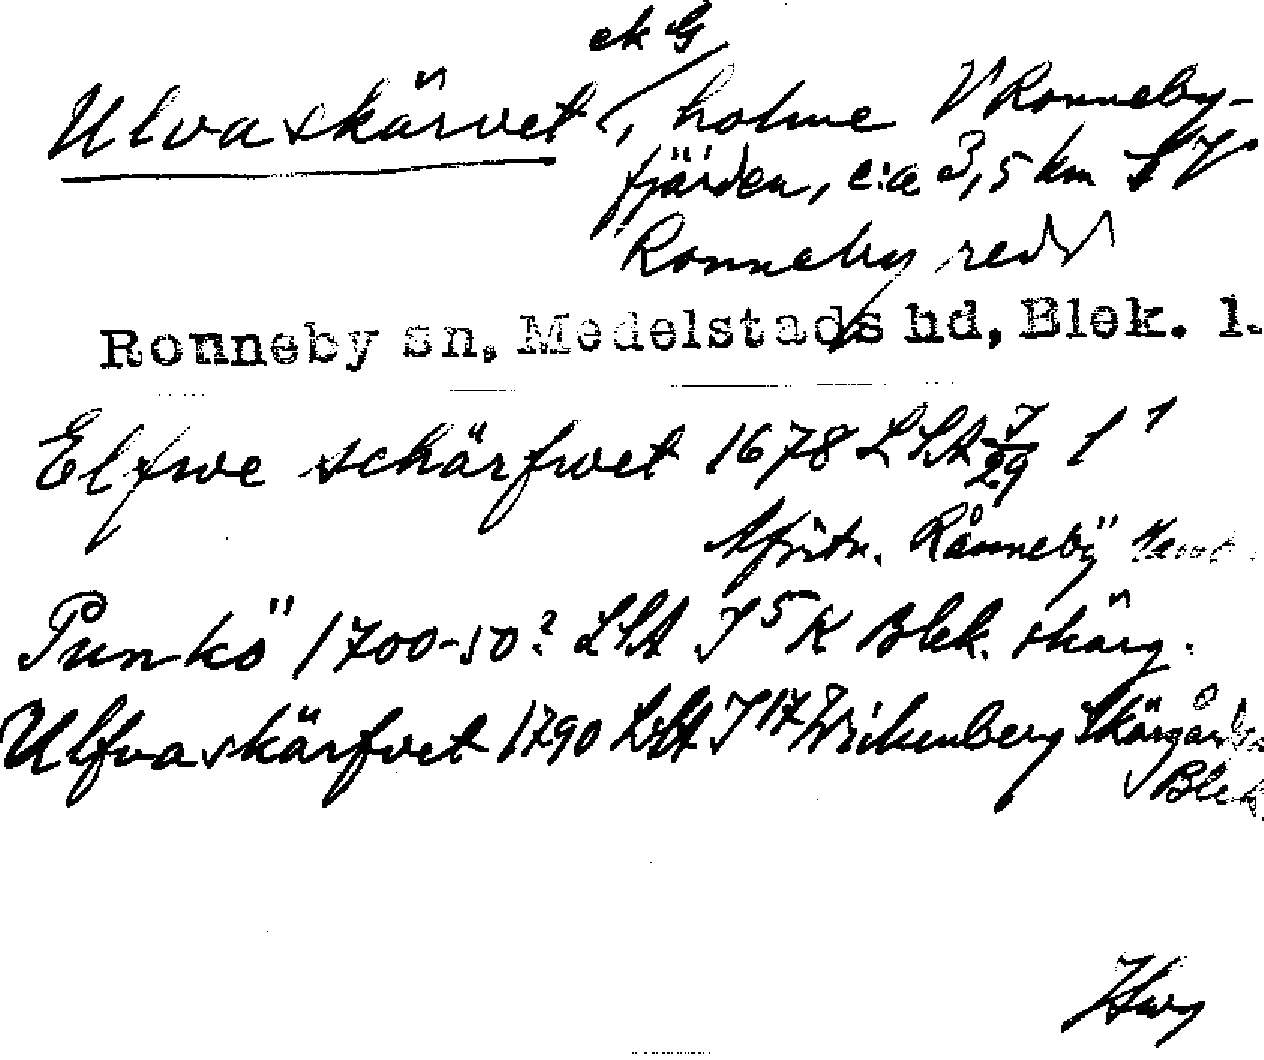 ek G
Ulvaskärvet, holme V Ronneby-
fjärden, c:a 3,5 km SV
Ronneby redd
Ronneby sn, Medelstads hd, Blek. l.
Elfwe schärfwet 1678 LSA
Afritn. Rånneby
Punkö 1700-50? LSA I 5 K Blek. skärg.
Ulfvaskärfvet 1790 LSA I 17 Wirkenberg Skärgård
Blek.